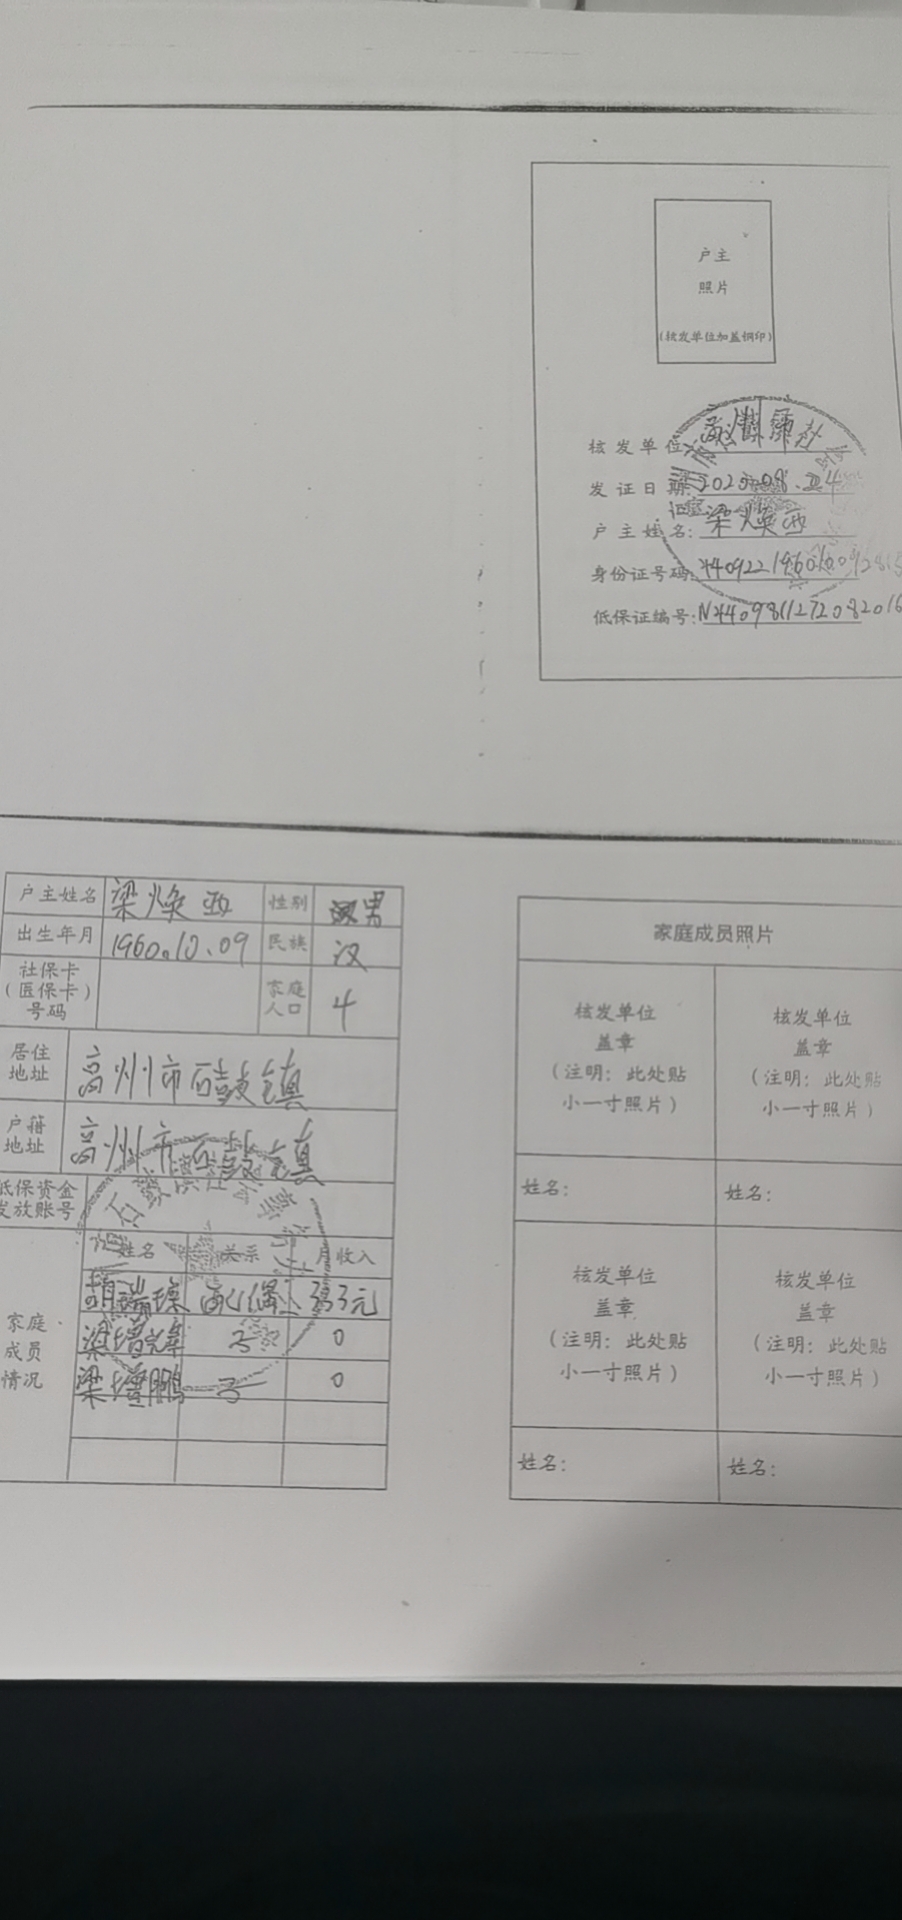 户主
照片
(核发单位加盖钢印)
核发单位:
发证日期:
户主姓名: 梁焕西
身份证号码:
低保证编号: N4409811272082016
户主姓名 梁焕西 性别 男
出生年月 1960.10.09 民族 汉
社保卡
(医保卡)
号码
家庭
人口 4
居住
地址 高州市石鼓镇
户籍
地址 高州市石鼓镇
低保资金
发放账号
姓名 关系 月收入
家庭
成员
情况
配偶
子 0
梁增鹏 子 0
家庭成员照片
核发单位
盖章
(注明: 此处贴
小一寸照片)
核发单位
盖章
(注明: 此处贴
小一寸照片)
姓名:
姓名:
核发单位
盖章
(注明: 此处贴
小一寸照片)
核发单位
盖章
(注明: 此处贴
小一寸照片)
姓名:
姓名: